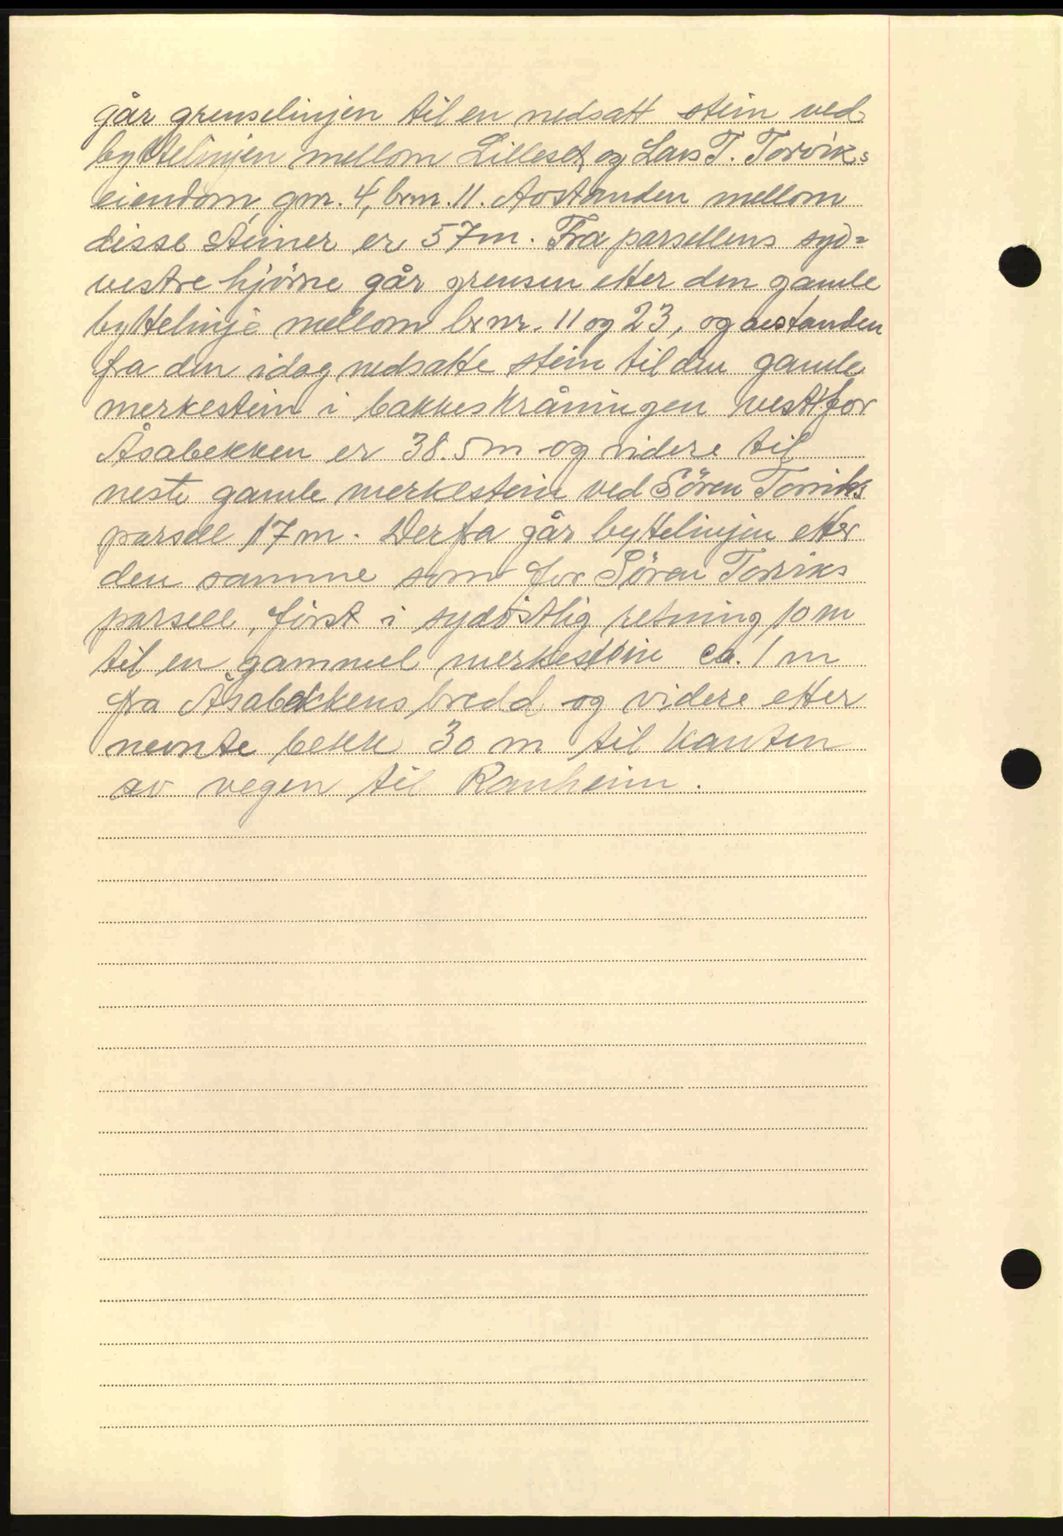 går grenselinjen til en nedsatt stein ved
byttelinjen mellom Lilleset og Lars T. Torviks
eiendom, gnr. 4, brnr. 11. Avstanden mellom
disse steiner er 57 m. Fra parsellens syd=
vestre hjörne går grensen etter den gamle
byttelinje mellom brnr. 11 og 23, og avstanden
fra den idag nedsatte stein til den gamle
merkestein i bakkeskråningen vest for
Åsabekken er 38.5 m og videre til
neste gamle merkestein ved Sören Torviks
parsell 17 m. Derfra går byttelinjen etter
den samme som for Sören Torviks
parsell, först i sydöstlig retning 10 m
til en gammel merkestein ca. 1 m
fra Åsabekkens bredd og videre etter
nevnte bekk 30 m til kanten
av vegen til Ranheim.